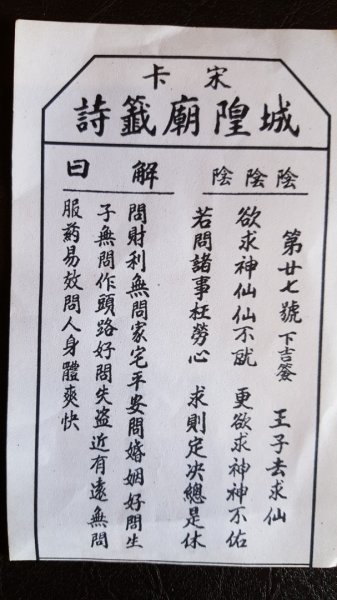 宋卡
城隍廟籤詩
陰陰陰
第廿七號 下吉簽 王子去求仙
欲求神仙仙不就 更欲求神神不佑
若問諸事枉勞心 求則定決總是休
解曰
問財利無問家宅平安問婚姻好問生
子無問作頭路好問失盜近有遠無問
服葯易效問人身體爽快